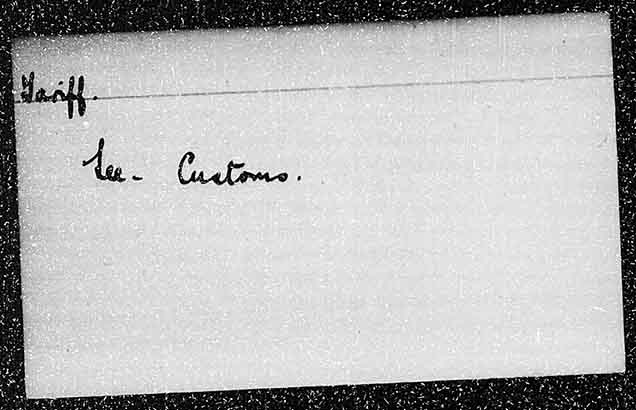 Tariff.
See - Customs.